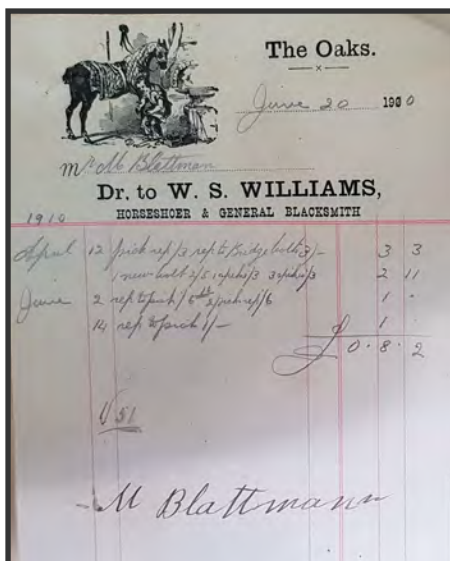 The Oaks.
June 20 1900
Mr M Blattman
Dr. to W. S. WILLIAMS,
HORSESHOER & GENERAL BLACKSMITH
1910
April 12 pick rep /3 rep to Bridge bolts 3/- 3 3
1 new bolt 2/5 /3 /3 2 11
June 2 rep to pick / pick rep /6 1 .
14 rep to pick 1/- 1 .
£ 0.8.2
M Blattmann